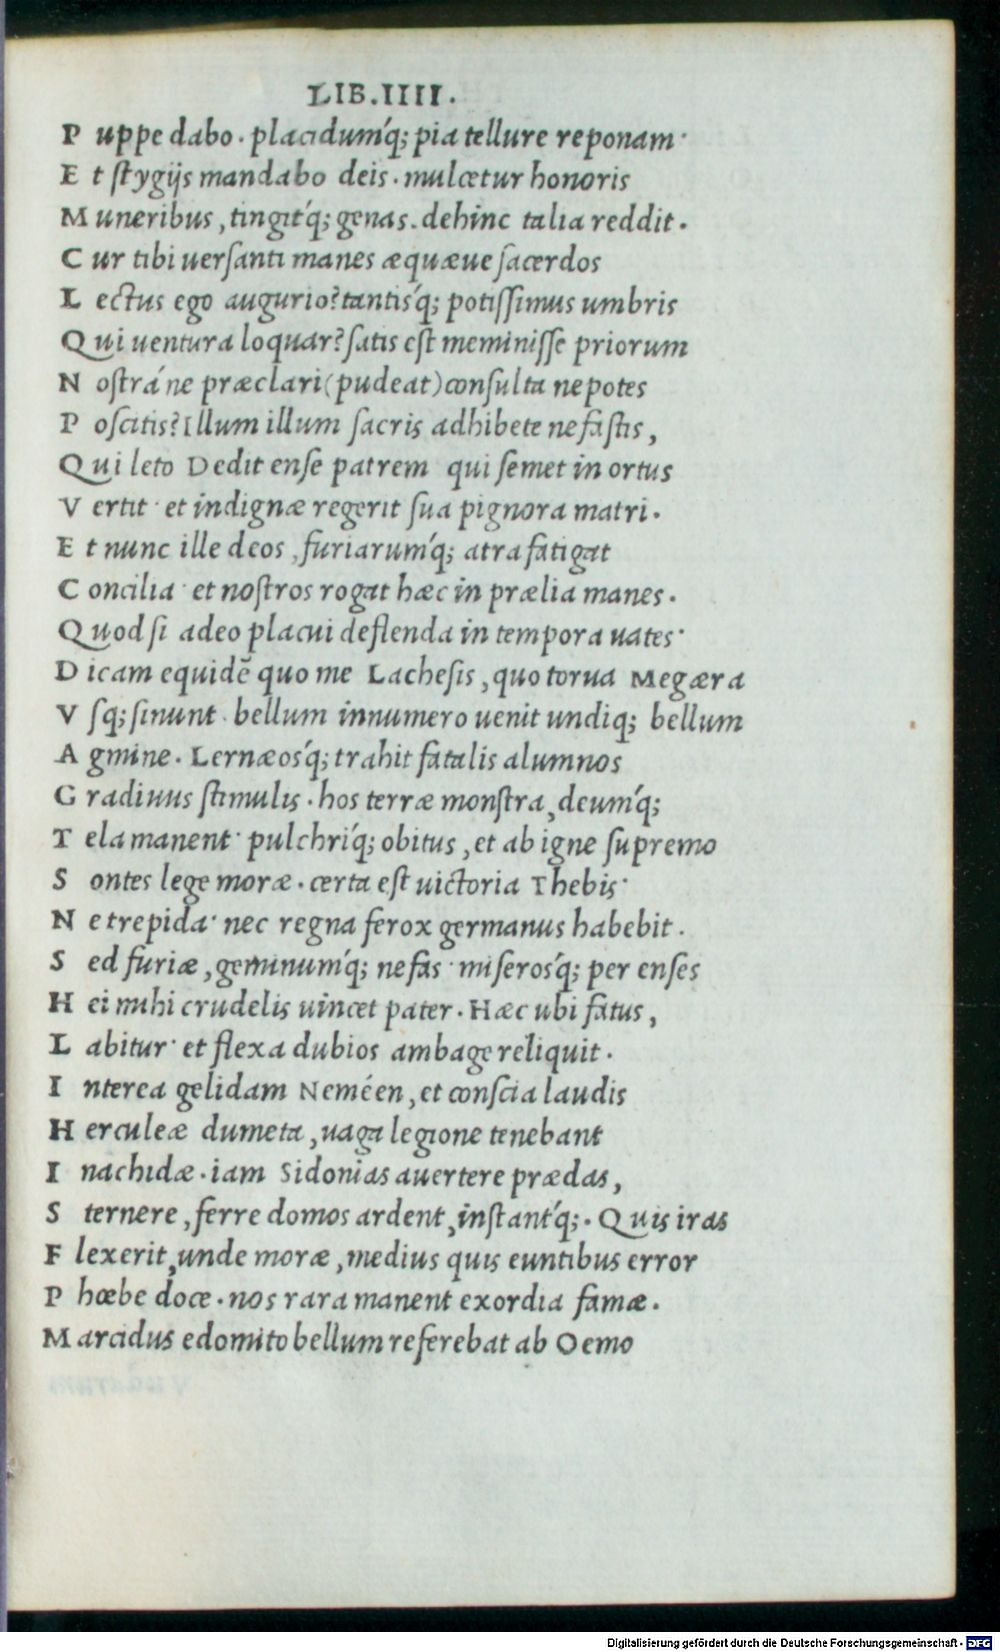 LIB.IIII.
P uppe dabo. placidumq́; pia tellure reponam·
E t stygijs mandabo deis. mulcetur honoris
M uneribus, tingitq́; genas. dehinc talia reddit.
C ur tibi uersanti manes æquæue sacerdos
L ectus ego augurio? tantisq́; potissimus umbris
Q ui uentura loquar? satis est meminisse priorum
N ostráne præclari (pudeat) consulta nepotes
P oscitis? Illum illum sacris adhibete nefastis,
Q ui leto Dedit ense patrem qui semet in ortus
V ertit· et indignæ regerit sua pignora matri.
E t nunc ille deos, furiarumq́; atra fatigat
C oncilia· et nostros rogat hæc in prælia manes.
Q uod si adeo placui deflenda in tempora uates·
D icam equidē quo me Lachesis, quo torua Megæra
V sq; sinunt. bellum innumero uenit undiq; bellum
A gmine. Lernæosq́; trahit fatalis alumnos
G radiuus stimulis. hos terræ monstra, deumq́;
T ela manent· pulchriq́; obitus, et ab igne supremo
S ontes lege moræ. certa est uictoria Thebis·
N e trepida· nec regna ferox germanus habebit.
S ed furiæ, geminumq́; nefas· miserosq́; per enses
H ei mihi crudelis uincet pater. Hæc ubi fatus,
L abitur· et flexa dubios ambage reliquit.
I nterea gelidam Neméen, et conscia laudis
H erculeæ dumeta, uaga legione tenebant
I nachidæ. iam Sidonias auertere prædas,
S ternere, ferre domos ardent, instantq́;. Quis iras
F lexerit, unde moræ, medius quis euntibus error
P hœbe doce. nos rara manent exordia famæ.
M arcidus edomito bellum referebat ab Oemo
Digitalisierung gefördert durch die Deutsche Forschungsgemeinschaft - DFG